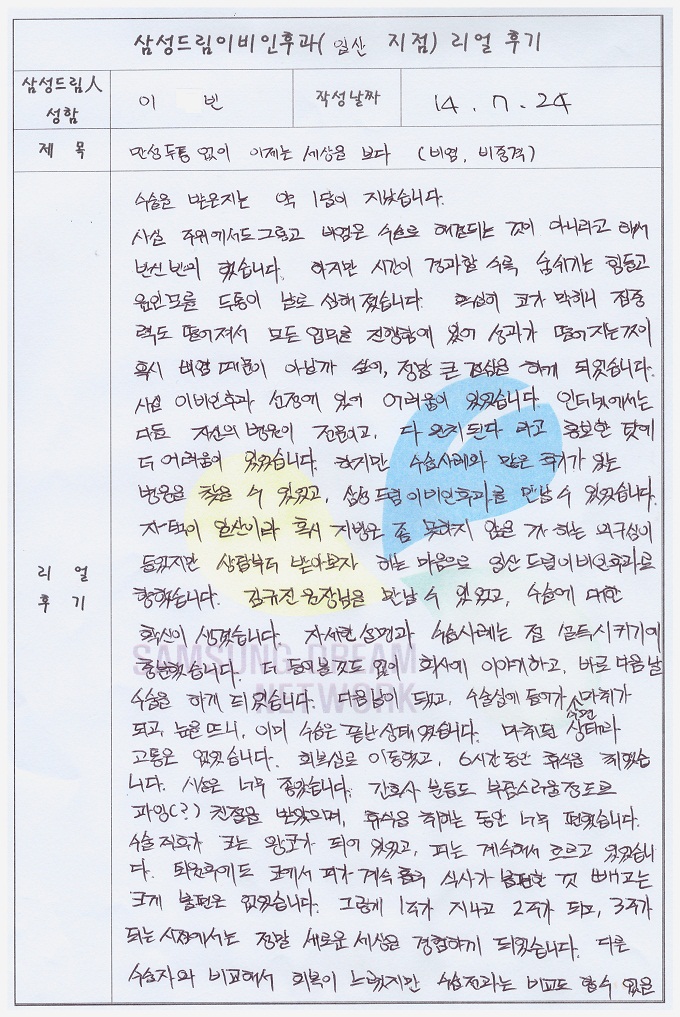 삼성드림이비인후과( 일산 지점) 리얼 후기
삼성드림人 성함
이 빈
작성날짜
14. 7. 24
제 목
만성두통 없이 이제는 세상을 보다 (비염, 비중격)
리 얼 후 기
수술을 받은지는 약 1달이 지났습니다.
사실 주위에서도 그렇고 비염은 수술로 해결되는 것이 아니라고 해서
반신반의 했습니다. 하지만 시간이 경과할 수록 숨쉬기는 힘들고
원인모를 두통이 날로 심해졌습니다. 특심히 코가 막히니 집중
력도 떨어져서 모든 업무를 진행함에 있어 성과가 떨어지는것이
혹시 비염때문이 아닐까 싶어, 정말 큰 결심을 하게 되었습니다.
사실 이비인후과 선정에 있어 어려움이 있었습니다. 인터넷에서는
다들 자신의 병원이 전문이고, 다 완치된다 라고 홍보한 탓에
더 어려움이 있었습니다. 하지만 수술사례와 많은 후기가 있는
병원을 찾을 수 있었고, 삼성드림이비인후과를 만날 수 있었습니다.
자택이 일산이라 혹시 지방은 좀 못하지 않을까 하는 의구심이
들었지만 상담부터 받아보자 하는 마음으로 일산 드림이비인후과로
향했습니다. 김규진 원장님을 만날 수 있었고, 수술에 대한
확신이 생겼습니다. 자세한 설명과 수술사례는 절 설득시키기에
충분했습니다. 더 들어볼것도 없이 회사에 이야기하고, 바로 다음날
수술을 하게 되었습니다. 다음날이 되고, 수술실에 들어가 수면마취가
되고, 눈을 뜨니, 이미 수술은 끝난 상태였습니다. 마취된 상태라
고통은 없었습니다. 회복실로 이동했고, 6시간동안 휴식을 취했습
니다. 시설은 너무 좋았습니다. 간호사 분들도 부담스러울정도로
과잉(?) 친절을 받았으며, 휴식을 취하는 동안 너무 편했습니다.
수술 직후라 코는 왕코가 되어 있었고, 피는 계속해서 흐르고 있었습니
다. 퇴원후에도 코에서 피가 계속 흘러 식사가 불편한 것 빼고는
크게 불편은 없었습니다. 그렇게 1주가 지나고 2주가 되고, 3주가
되는 시점에서는 정말 새로운 세상을 경험하게 되었습니다. 다른
수술자와 비교해서 회복이 느렸지만 수술전과는 비교도 할수 없을
SAMSUNG DREAM
NETWORK